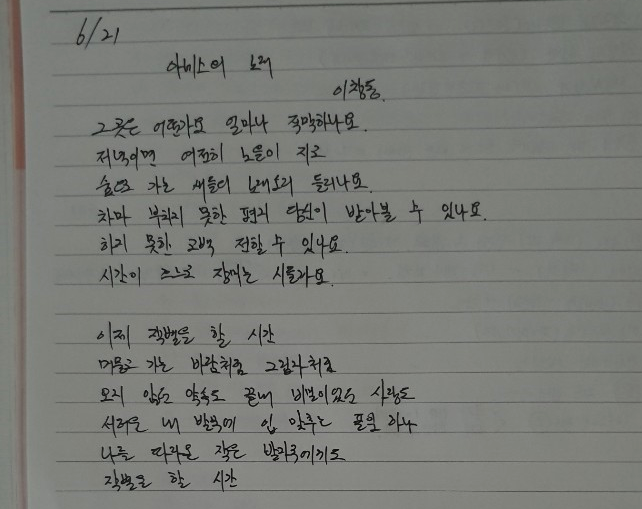 6/21
아네스의 노래
이창동.
그곳은 어떤가요 얼마나 적막하나요.
저녁이면 여전히 노을이 지고
숲으로 가는 새들의 노래소리 들리나요.
차마 부치지 못한 편지 당신이 받아볼 수 있나요.
하지 못한 고백 전할 수 있나요.
시간이 흐르고 장미는 시들까요.
이제 작별을 할 시간
머물고 가는 바람처럼 그림자처럼
오지 않은 약속도 끝내 비밀이었던 사랑도
서러운 내 발목에 입 맞추는 풀잎 하나
나를 따라온 작은 발자국에게도
작별을 할 시간